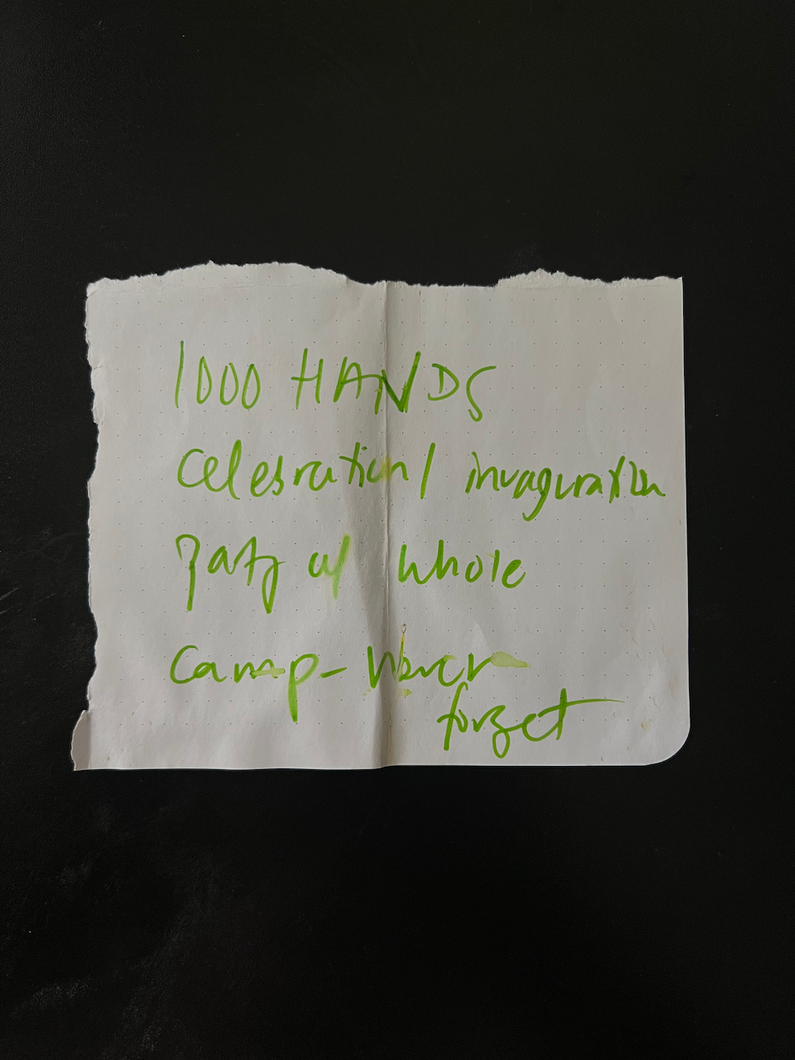 1000 HANDS
Celebration/ invaguration
Party w/ whole
camp - Never
forget